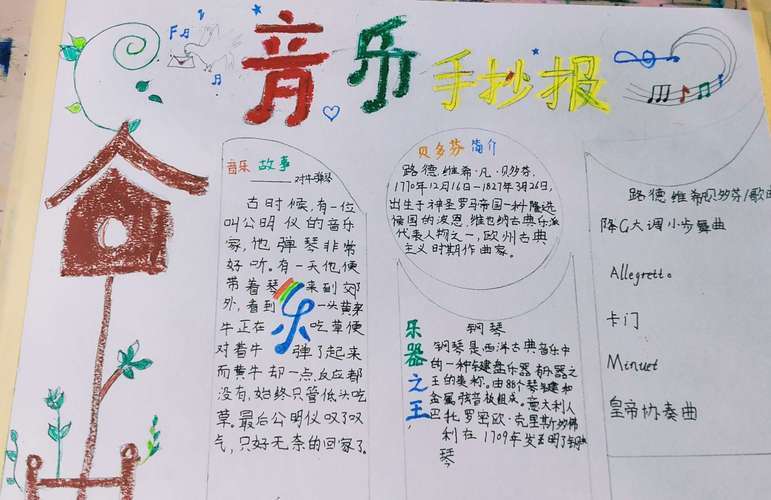 音乐手抄报
音乐故事
——对牛弹琴
古时候,有一位
叫公明仪的音乐
家,他弹琴非常
好听。有一天他便
带着琴来到郊
外,看到一头黄家
牛正在吃草便
对着牛弹了起来
而黄牛却一点反应都
没有,始终只管低头吃
草。最后公明仪叹了叹
气,只好无奈的回家了。
乐
贝多芬简介
路德维希·凡·贝多芬,
1770年12月16日—1827年3月26日,
出生于神圣罗马帝国一种隆选
候国的波恩,维也纳古典乐派
代表人物之一,欧州古典
主义时期作曲家。
乐器之王
钢琴
钢琴是西洋古典音乐中
的一种键盘乐器有乐器之
王的美称。由88个琴键和
金属弦音板组成。意大利人
巴托罗密欧·克里斯多佛
利在1709年发明了钢
琴
路德维希贝多芬/歌曲
降G大调小步舞曲
Allegretto
卡门
Minuet
皇帝协奏曲